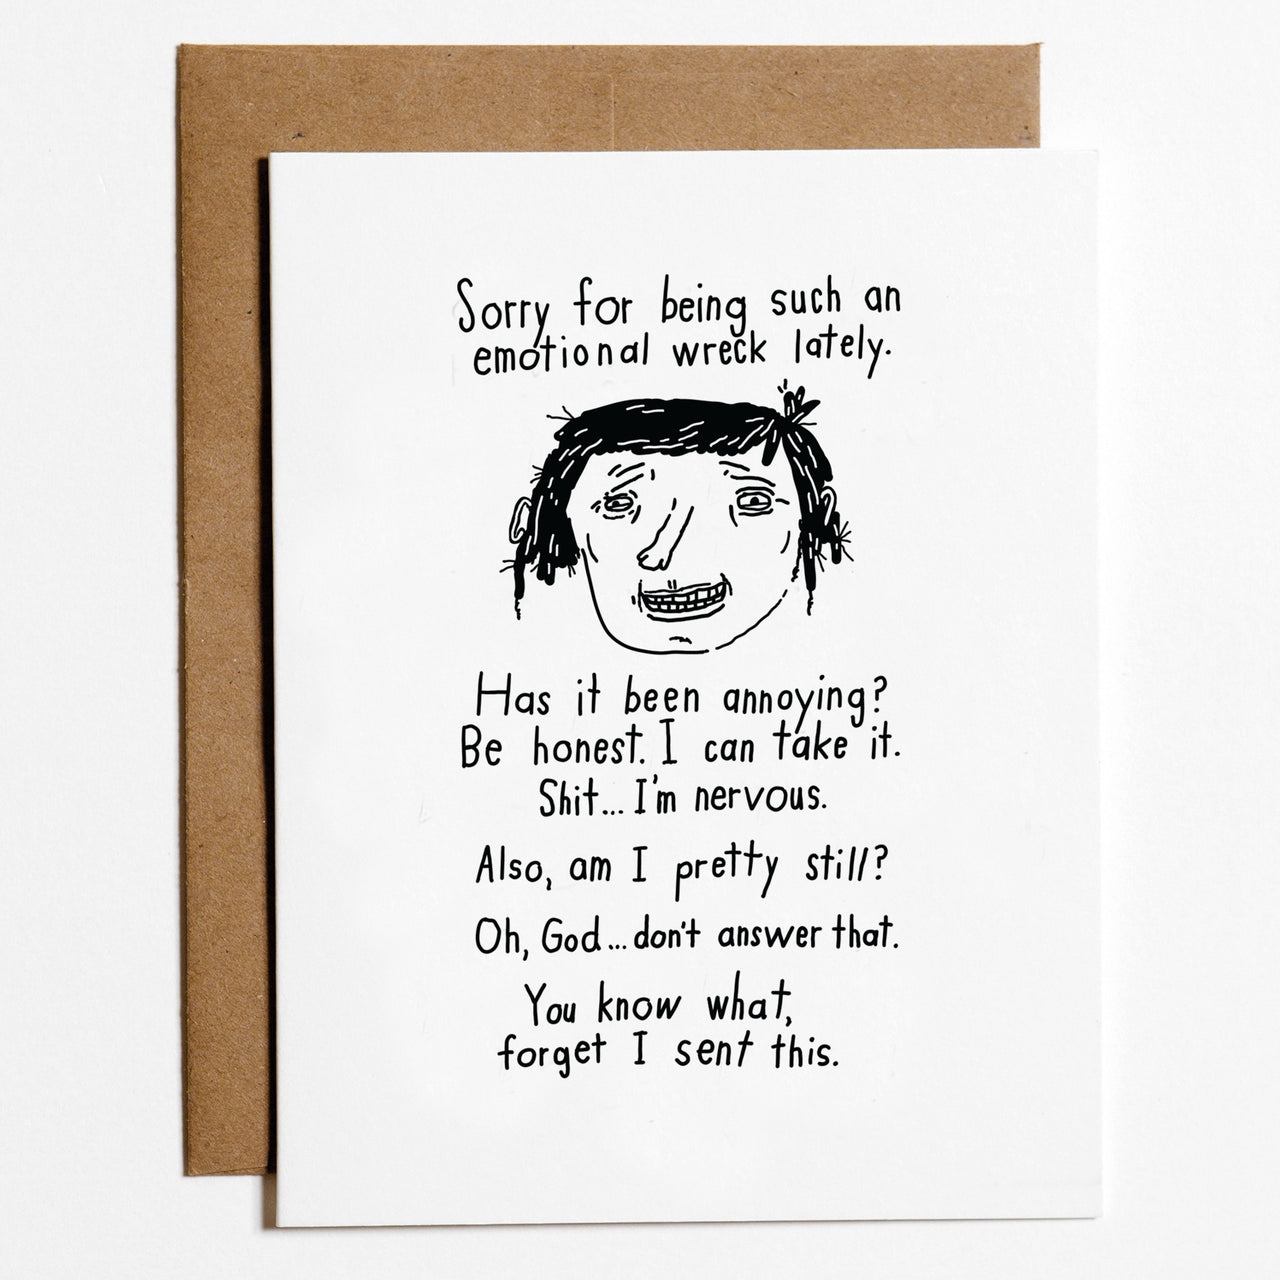 Sorry for being such an
emotional wreck lately.
Has it been annoying?
Be honest. I can take it.
Shit... I'm nervous.
Also, am I pretty still?
Oh, God... don't answer that.
You know what,
forget I sent this.